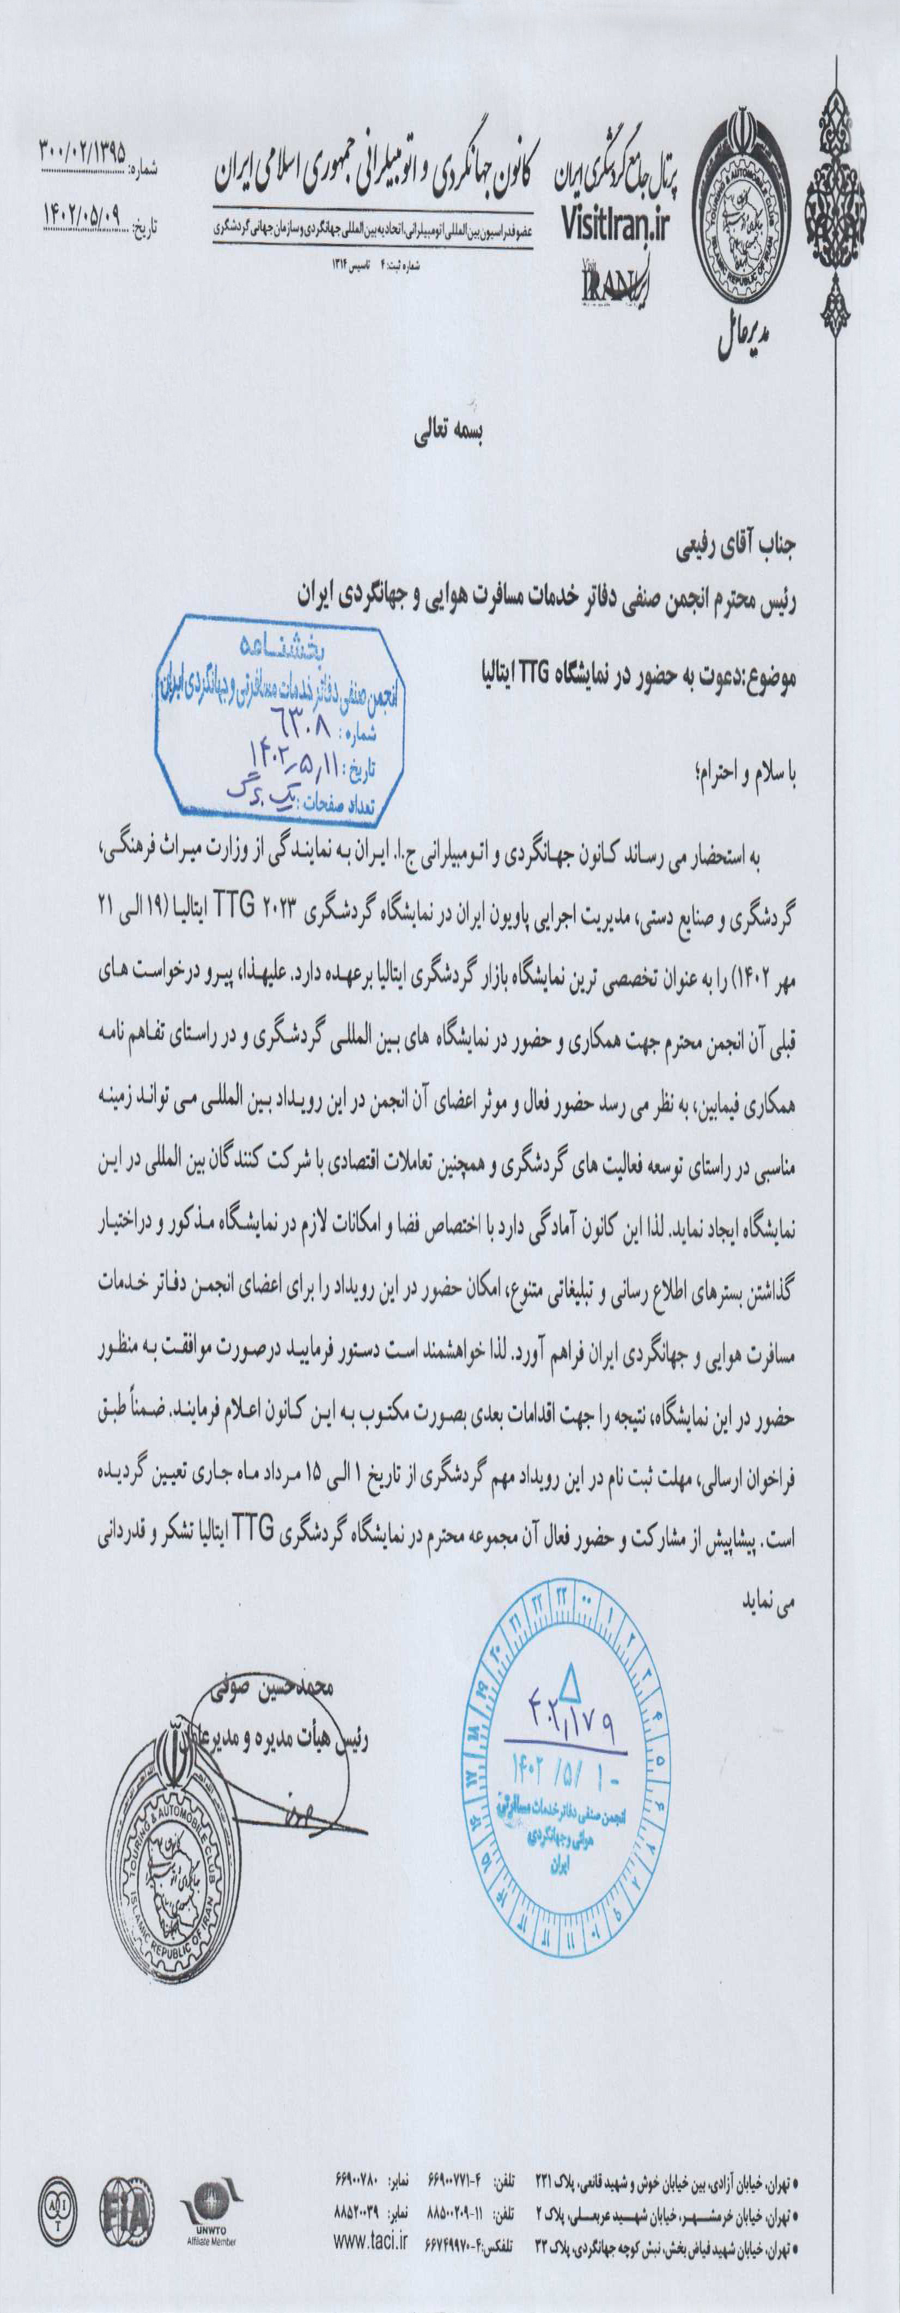 شماره: ۳۰۰/۰۲/۱۳۹۵
تاریخ: ۱۴۰۲/۰۵/۰۹
کانون جهانگردی و اتومبیلرانی جمهوری اسلامی ایران
عضو فدراسیون بین‌المللی اتومبیلرانی، اتحادیه بین‌المللی جهانگردی و سازمان جهانی گردشگری
شماره ثبت: ۴ تاسیس ۱۳۱۴
پرتال جامع گردشگری ایران
VisitIran.ir
Visit
IRAN
TOURING & AUTOMOBILE CLUB
ISLAMIC REPUBLIC OF IRAN
مدیرعامل
بسمه تعالی
جناب آقای رفیعی
رئیس محترم انجمن صنفی دفاتر خدمات مسافرت هوایی و جهانگردی ایران
موضوع:دعوت به حضور در نمایشگاه TTG ایتالیا
بخشنامه
انجمن صنفی دفاتر خدمات مسافرتی و جهانگردی ایران
شماره: ۶۳۰۸
تاریخ: ۱۴۰۲٫۵٫۱۱
تعداد صفحات: یک برگ
با سلام و احترام؛
به استحضار می رساند کانون جهانگردی و اتومبیلرانی ج.ا. ایران به نمایندگی از وزارت میراث فرهنگی،
گردشگری و صنایع دستی، مدیریت اجرایی پاویون ایران در نمایشگاه گردشگری TTG ۲۰۲۳ ایتالیا (۱۹ الی ۲۱
مهر ۱۴۰۲) را به عنوان تخصصی ترین نمایشگاه بازار گردشگری ایتالیا برعهده دارد. علیهذا، پیرو درخواست های
قبلی آن انجمن محترم جهت همکاری و حضور در نمایشگاه های بین المللی گردشگری و در راستای تفاهم نامه
همکاری فیمابین، به نظر می رسد حضور فعال و موثر اعضای آن انجمن در این رویداد بین المللی می تواند زمینه
مناسبی در راستای توسعه فعالیت های گردشگری و همچنین تعاملات اقتصادی با شرکت کنندگان بین المللی در این
نمایشگاه ایجاد نماید. لذا این کانون آمادگی دارد با اختصاص فضا و امکانات لازم در نمایشگاه مذکور و دراختیار
گذاشتن بسترهای اطلاع رسانی و تبلیغاتی متنوع، امکان حضور در این رویداد را برای اعضای انجمن دفاتر خدمات
مسافرت هوایی و جهانگردی ایران فراهم آورد. لذا خواهشمند است دستور فرمایید درصورت موافقت به منظور
حضور در این نمایشگاه، نتیجه را جهت اقدامات بعدی بصورت مکتوب به این کانون اعلام فرمایند. ضمناً طبق
فراخوان ارسالی، مهلت ثبت نام در این رویداد مهم گردشگری از تاریخ ۱ الی ۱۵ مرداد ماه جاری تعیین گردیده
است. پیشاپیش از مشارکت و حضور فعال آن مجموعه محترم در نمایشگاه گردشگری TTG ایتالیا تشکر و قدردانی
می نماید
محمدحسین صوفی
رئیس هیأت مدیره و مدیرعامل
TOURING & AUTOMOBILE CLUB
ISLAMIC REPUBLIC OF IRAN
۴۰۲٫۱۷۹
۱۴۰۲ /۵/ ۱۰
انجمن صنفی دفاتر خدمات مسافرتی
هوائی و جهانگردی
ایران
• تهران، خیابان آزادی، بین خیابان خوش و شهید قانعی، پلاک ۲۳۱ تلفن: ۴-۶۶۹۰۰۷۷۱ نمابر: ۶۶۹۰۰۷۸۰
• تهران، خیابان خرمشهر، خیابان شهید عربعلی، پلاک ۲ تلفن: ۱۱-۸۸۵۰۰۲۰۹ نمابر: ۸۸۵۲۰۰۳۹
• تهران، خیابان شهید فیاض بخش، نبش کوچه جهانگردی، پلاک ۲۳ تلفکس: ۴-۶۶۷۴۹۹۷۰ www.taci.ir
AIT
FIA
UNWTO
Affiliate Member